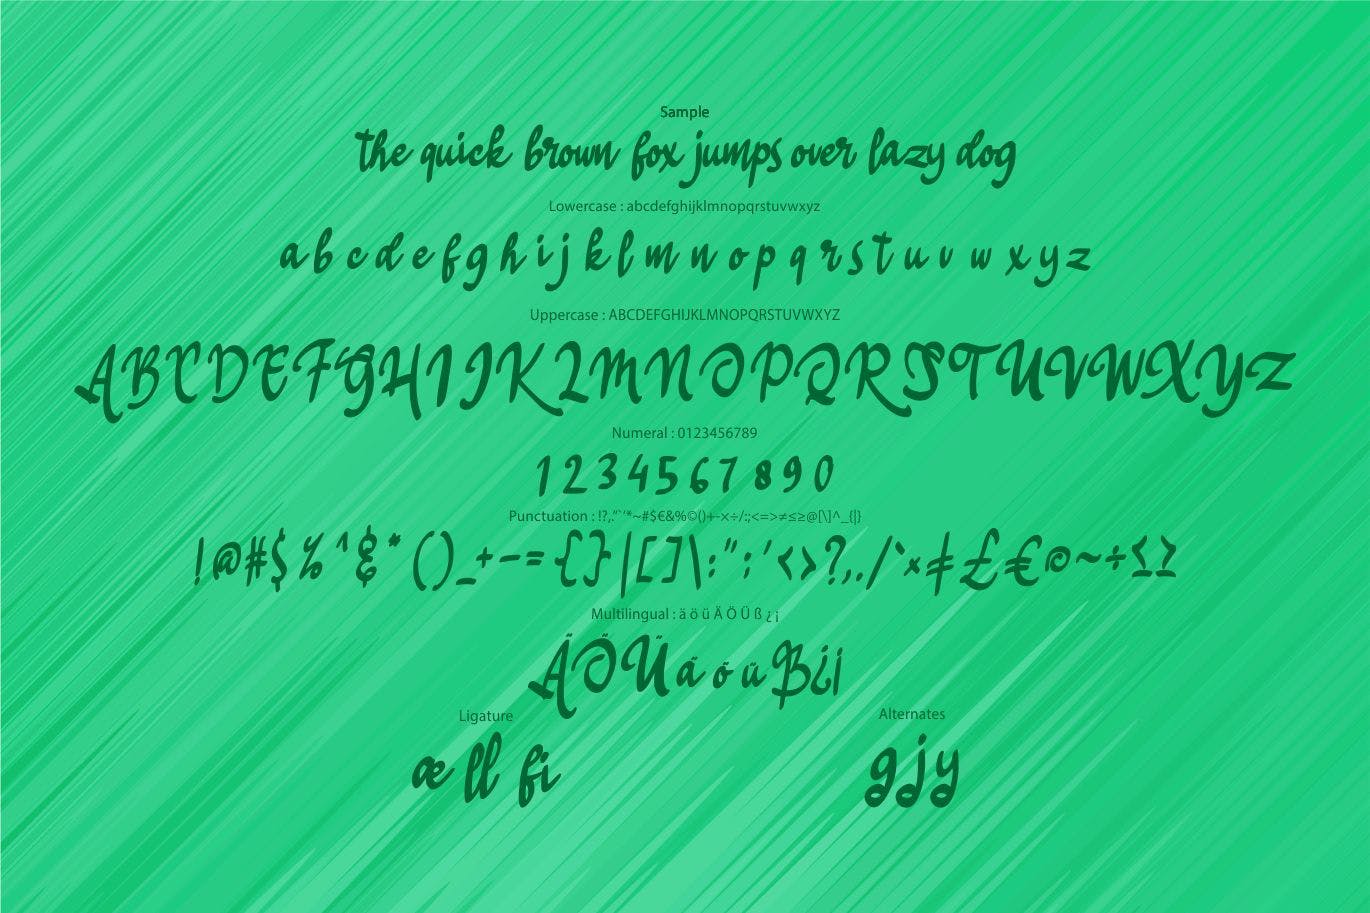 Sample
the quick brown fox jumps over lazy dog
Lowercase : abcdefghijklmnopqrstuvwxyz
a b c d e f g h i j k l m n o p q r s t u v w x y z
Uppercase : ABCDEFGHIJKLMNOPQRSTUVWXYZ
ABCDEFGHIJKLMNOPQRSTUVWXYZ
Numeral : 0123456789
1 2 3 4 5 6 7 8 9 0
Punctuation : !?,.“”`‘’*~#$€&%©()+-×÷/:;<=>≠≤≥@[\]^_{|}
!@#$%^&*()_+-={}|[]\:";'<>?,./`×≠£€©~÷≤≥
Multilingual : ä ö ü Ä Ö Ü ß ¿ ¡
ÄÖÜäöüß¿¡
Ligature
æ ll fi
Alternates
g j y